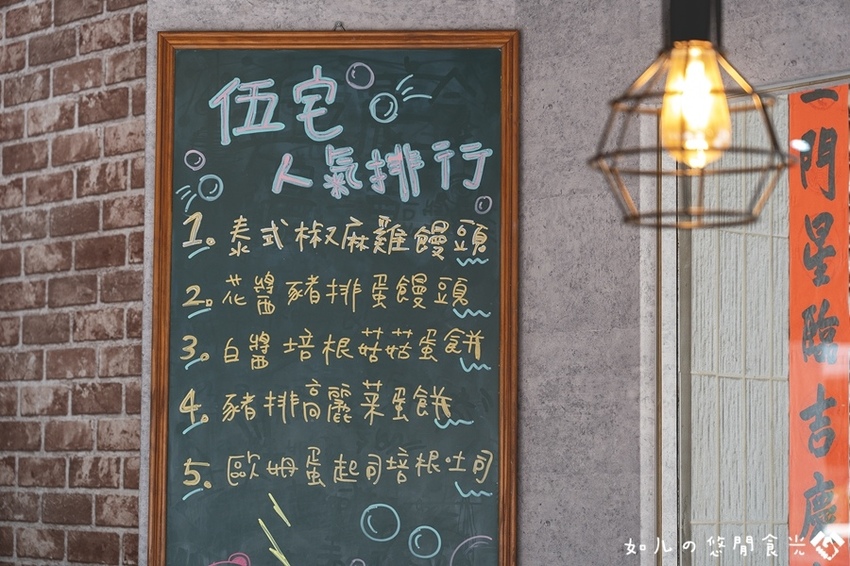 伍宅
人氣排行
1. 泰式椒麻雞饅頭
2. 花醬豬排蛋饅頭
3. 白醬培根菇菇蛋餅
4. 豬排高麗菜蛋餅
5. 歐姆蛋起司培根吐司
門星臨吉慶
如儿の悠閒食光